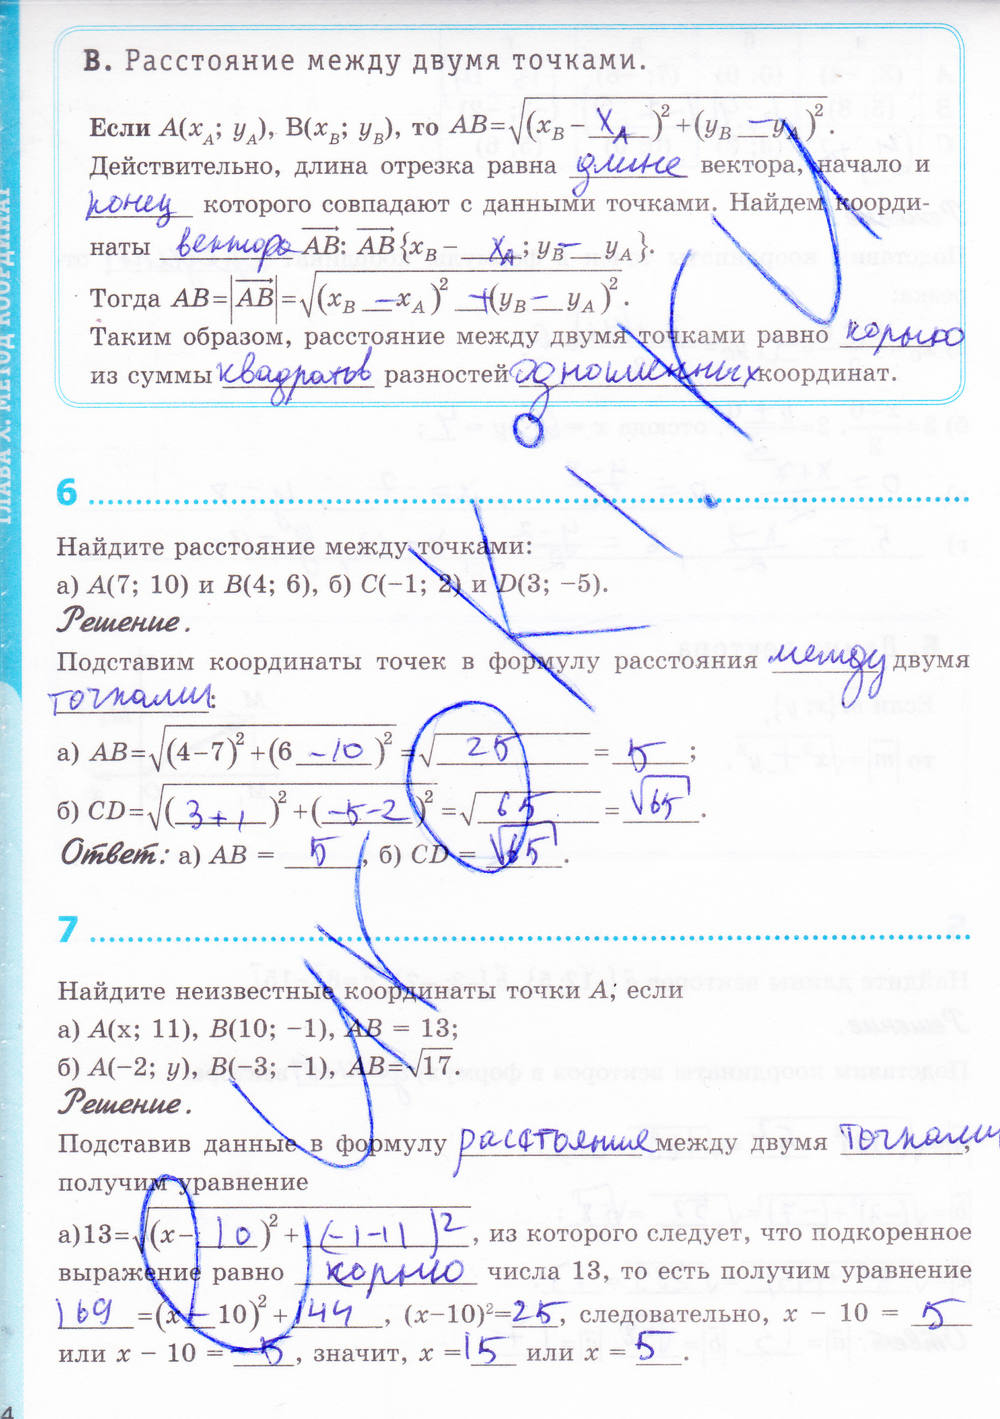 В. Расстояние между двумя точками.
Если A(x_A; y_A), B(x_B; y_B), то AB=√((x_B − x_A)²+(y_B − y_A)²).
Действительно, длина отрезка равна длине вектора, начало и
конец которого совпадают с данными точками. Найдем коорди-
наты вектора AB: AB{x_B − x_A; y_B − y_A}.
Тогда AB=|AB|=√((x_B − x_A)² + (y_B − y_A)²).
Таким образом, расстояние между двумя точками равно корню
из суммы квадратов разностей одноименных координат.
ГЛАВА X. МЕТОД КООРДИНАТ
6
Найдите расстояние между точками:
а) A(7; 10) и B(4; 6), б) C(−1; 2) и D(3; −5).
Решение.
Подставим координаты точек в формулу расстояния между двумя
точками:
а) AB=√((4−7)²+(6 −10)²)=√25 = 5;
б) CD=√((3+1)²+(−5−2)²)=√65 = √65.
Ответ: а) AB = 5, б) CD = √65.
7
Найдите неизвестные координаты точки A, если
а) A(x; 11), B(10; −1), AB = 13;
б) A(−2; y), B(−3; −1), AB=√17.
Решение.
Подставив данные в формулу расстояния между двумя точками,
получим уравнение
а)13=√((x− 10)²+(−1−11)²), из которого следует, что подкоренное
выражение равно корню числа 13, то есть получим уравнение
169=(x − 10)²+144, (x−10)²=25, следовательно, x − 10 = 5
или x − 10 = −5, значит, x =15 или x = 5.
4